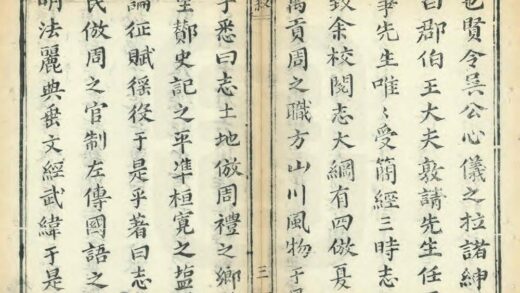 也賢令吳公心儀之拉諸紳
白郡伯王大夫敦請先生任
事先生唯〻受簡經三時志
致余校閱志大綱有四倣夏
禹貢周之職方山川風物于
敘
三
于悉曰志土地倣周禮之鄉
鄭史記之平準桓寬之塩
論征賦徭役于是乎著曰志
民倣周之官制左傳國語之
明法麗典垂文經武緯于是